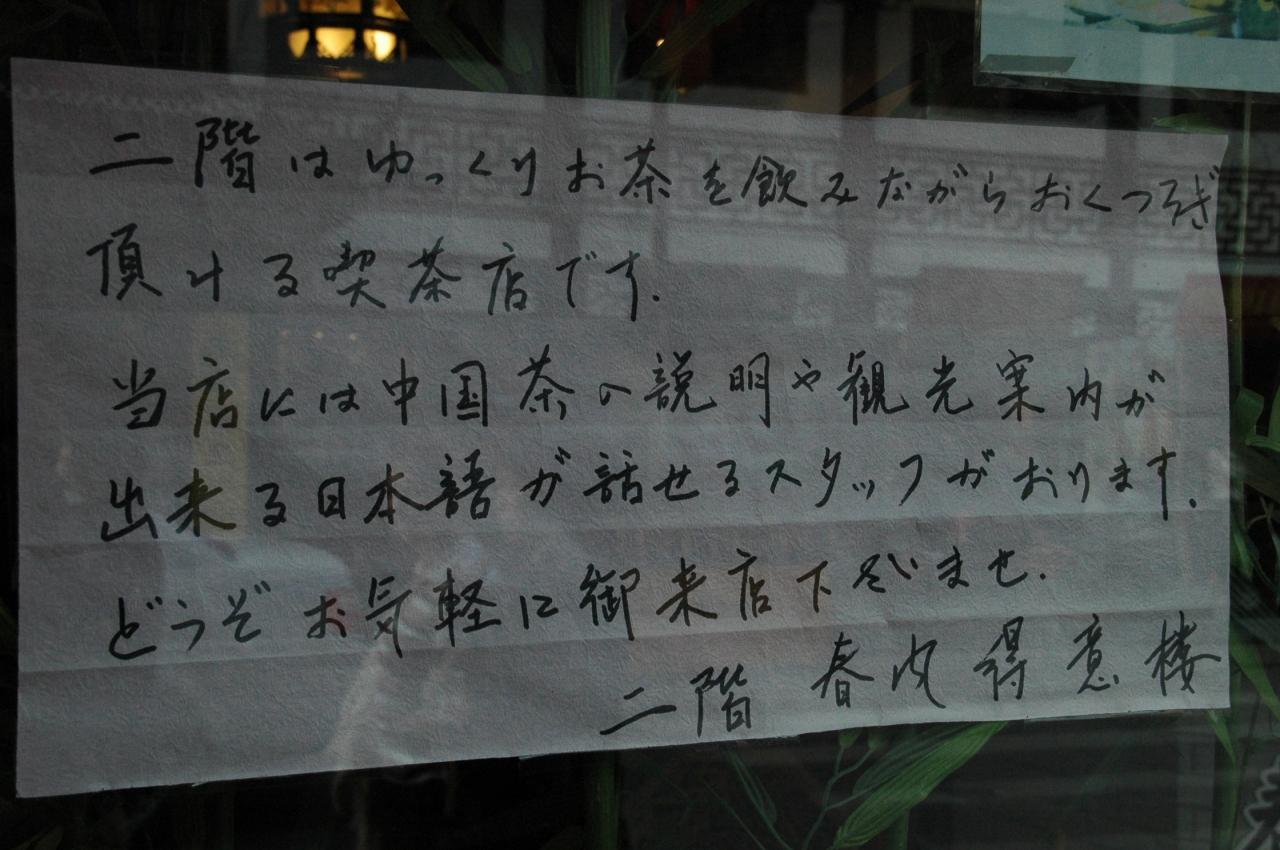 二階はゆっくりお茶を飲みながらおくつろぎ
頂ける喫茶店です.
当店には中国茶の説明や観光案内が
出来る日本語が話せるスタッフがおります.
どうぞお気軽に御来店下さいませ.
二階 春风得意楼